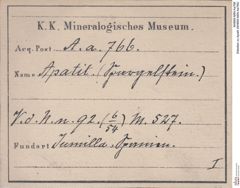 K. K. Mineralogisches Museum.
Acq. Post A. a. 766.
Name Apatit. (Spargelstein.)
V. d. N. n. 92. (6/54) M. 527.
Fundort Jumilla. Spanien.
I